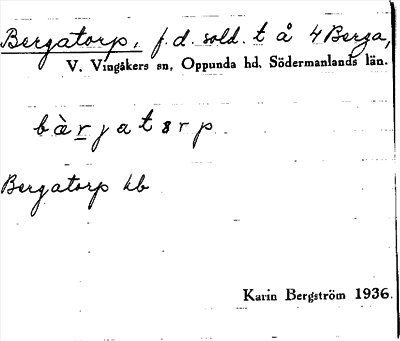 Bergatorp, f.d. sold. t å 4 Berga,
V. Vingåkers sn, Oppunda hd, Södermanlands län.
bàrjatɜrp
Bergatorp kb
Karin Bergström 1936.